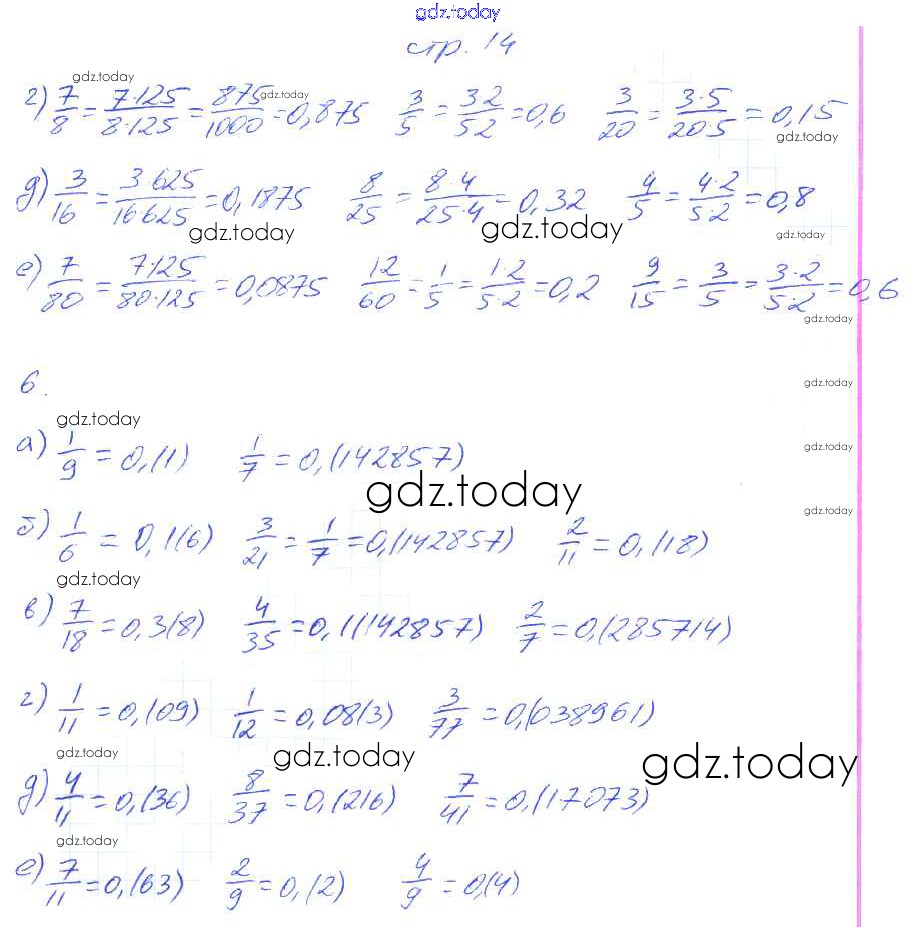 gdz.today
стр. 14
gdz.today
г) 7/8 = 7·125/8·125 = 875/1000 = 0,875 3/5 = 3·2/5·2 = 0,6 3/20 = 3·5/20·5 = 0,15
gdz.today
gdz.today
д) 3/16 = 3·625/16·625 = 0,1875 8/25 = 8·4/25·4 = 0,32 4/5 = 4·2/5·2 = 0,8
gdz.today gdz.today gdz.today
е) 7/80 = 7·125/80·125 = 0,0875 12/60 = 1/5 = 1·2/5·2 = 0,2 9/15 = 3/5 = 3·2/5·2 = 0,6
gdz.today
6. gdz.today
gdz.today
а) 1/9 = 0,(1) 1/7 = 0,(142857) gdz.today
gdz.today
gdz.today
б) 1/6 = 0,1(6) 3/21 = 1/7 = 0,(142857) 2/11 = 0,(18)
gdz.today
в) 7/18 = 0,3(8) 4/35 = 0,1(142857) 2/7 = 0,(285714)
г) 1/11 = 0,(09) 1/12 = 0,08(3) 3/77 = 0,(038961)
gdz.today gdz.today gdz.today
д) 4/11 = 0,(36) 8/37 = 0,(216) 7/41 = 0,(17073)
gdz.today
е) 7/11 = 0,(63) 2/9 = 0,(2) 4/9 = 0,(4)